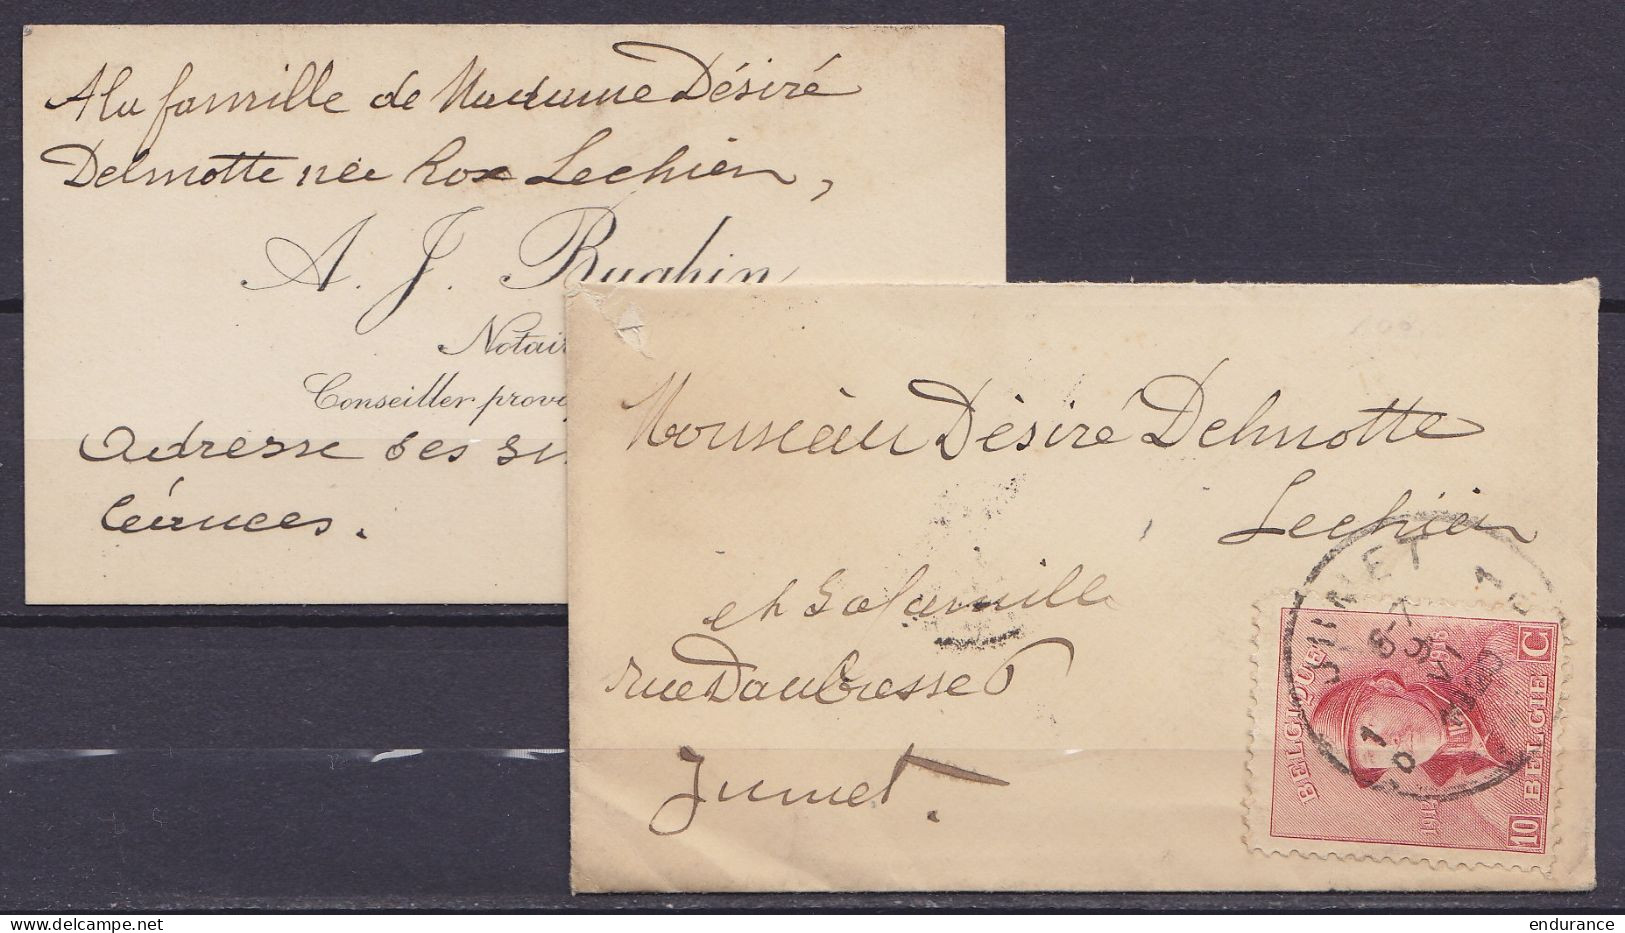 A la famille de Madame Désiré
Delmotte née Rox Lechien,
A. J. Rughin
Notair
Conseiller prov
adresse ses sin
cérnces.
Monsieur Désiré Delmotte
Lechien
et sa famille
rue Daubresse 6
Jumet.
JUMET
8-7
VI
1920
1914
BELGIQUE
BELGIË
10 C
endurance